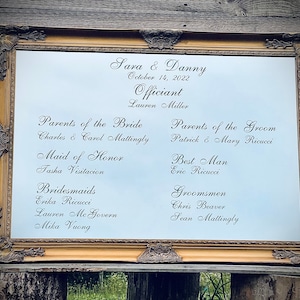 Sara & Danny
October 14, 2022
Officiant
Lauren Miller
Parents of the Bride
Charles & Carol Mattingly
Parents of the Groom
Patrick & Mary Ricucci
Maid of Honor
Tasha Visitacion
Best Man
Eric Ricucci
Bridesmaids
Erika Ricucci
Lauren McGovern
Mika Vuong
Groomsmen
Chris Beaver
Sean Mattingly